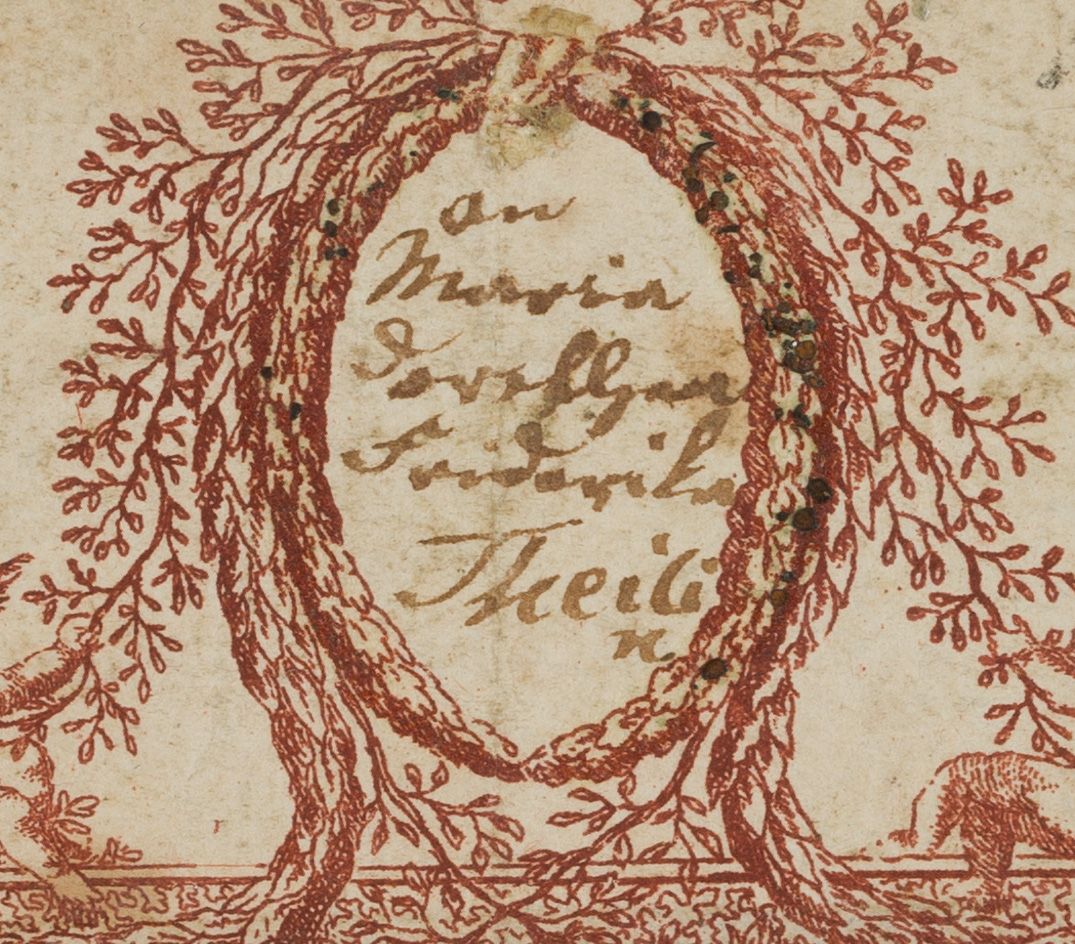 an
Maria
Dorethea
Friderika
Theili
n.